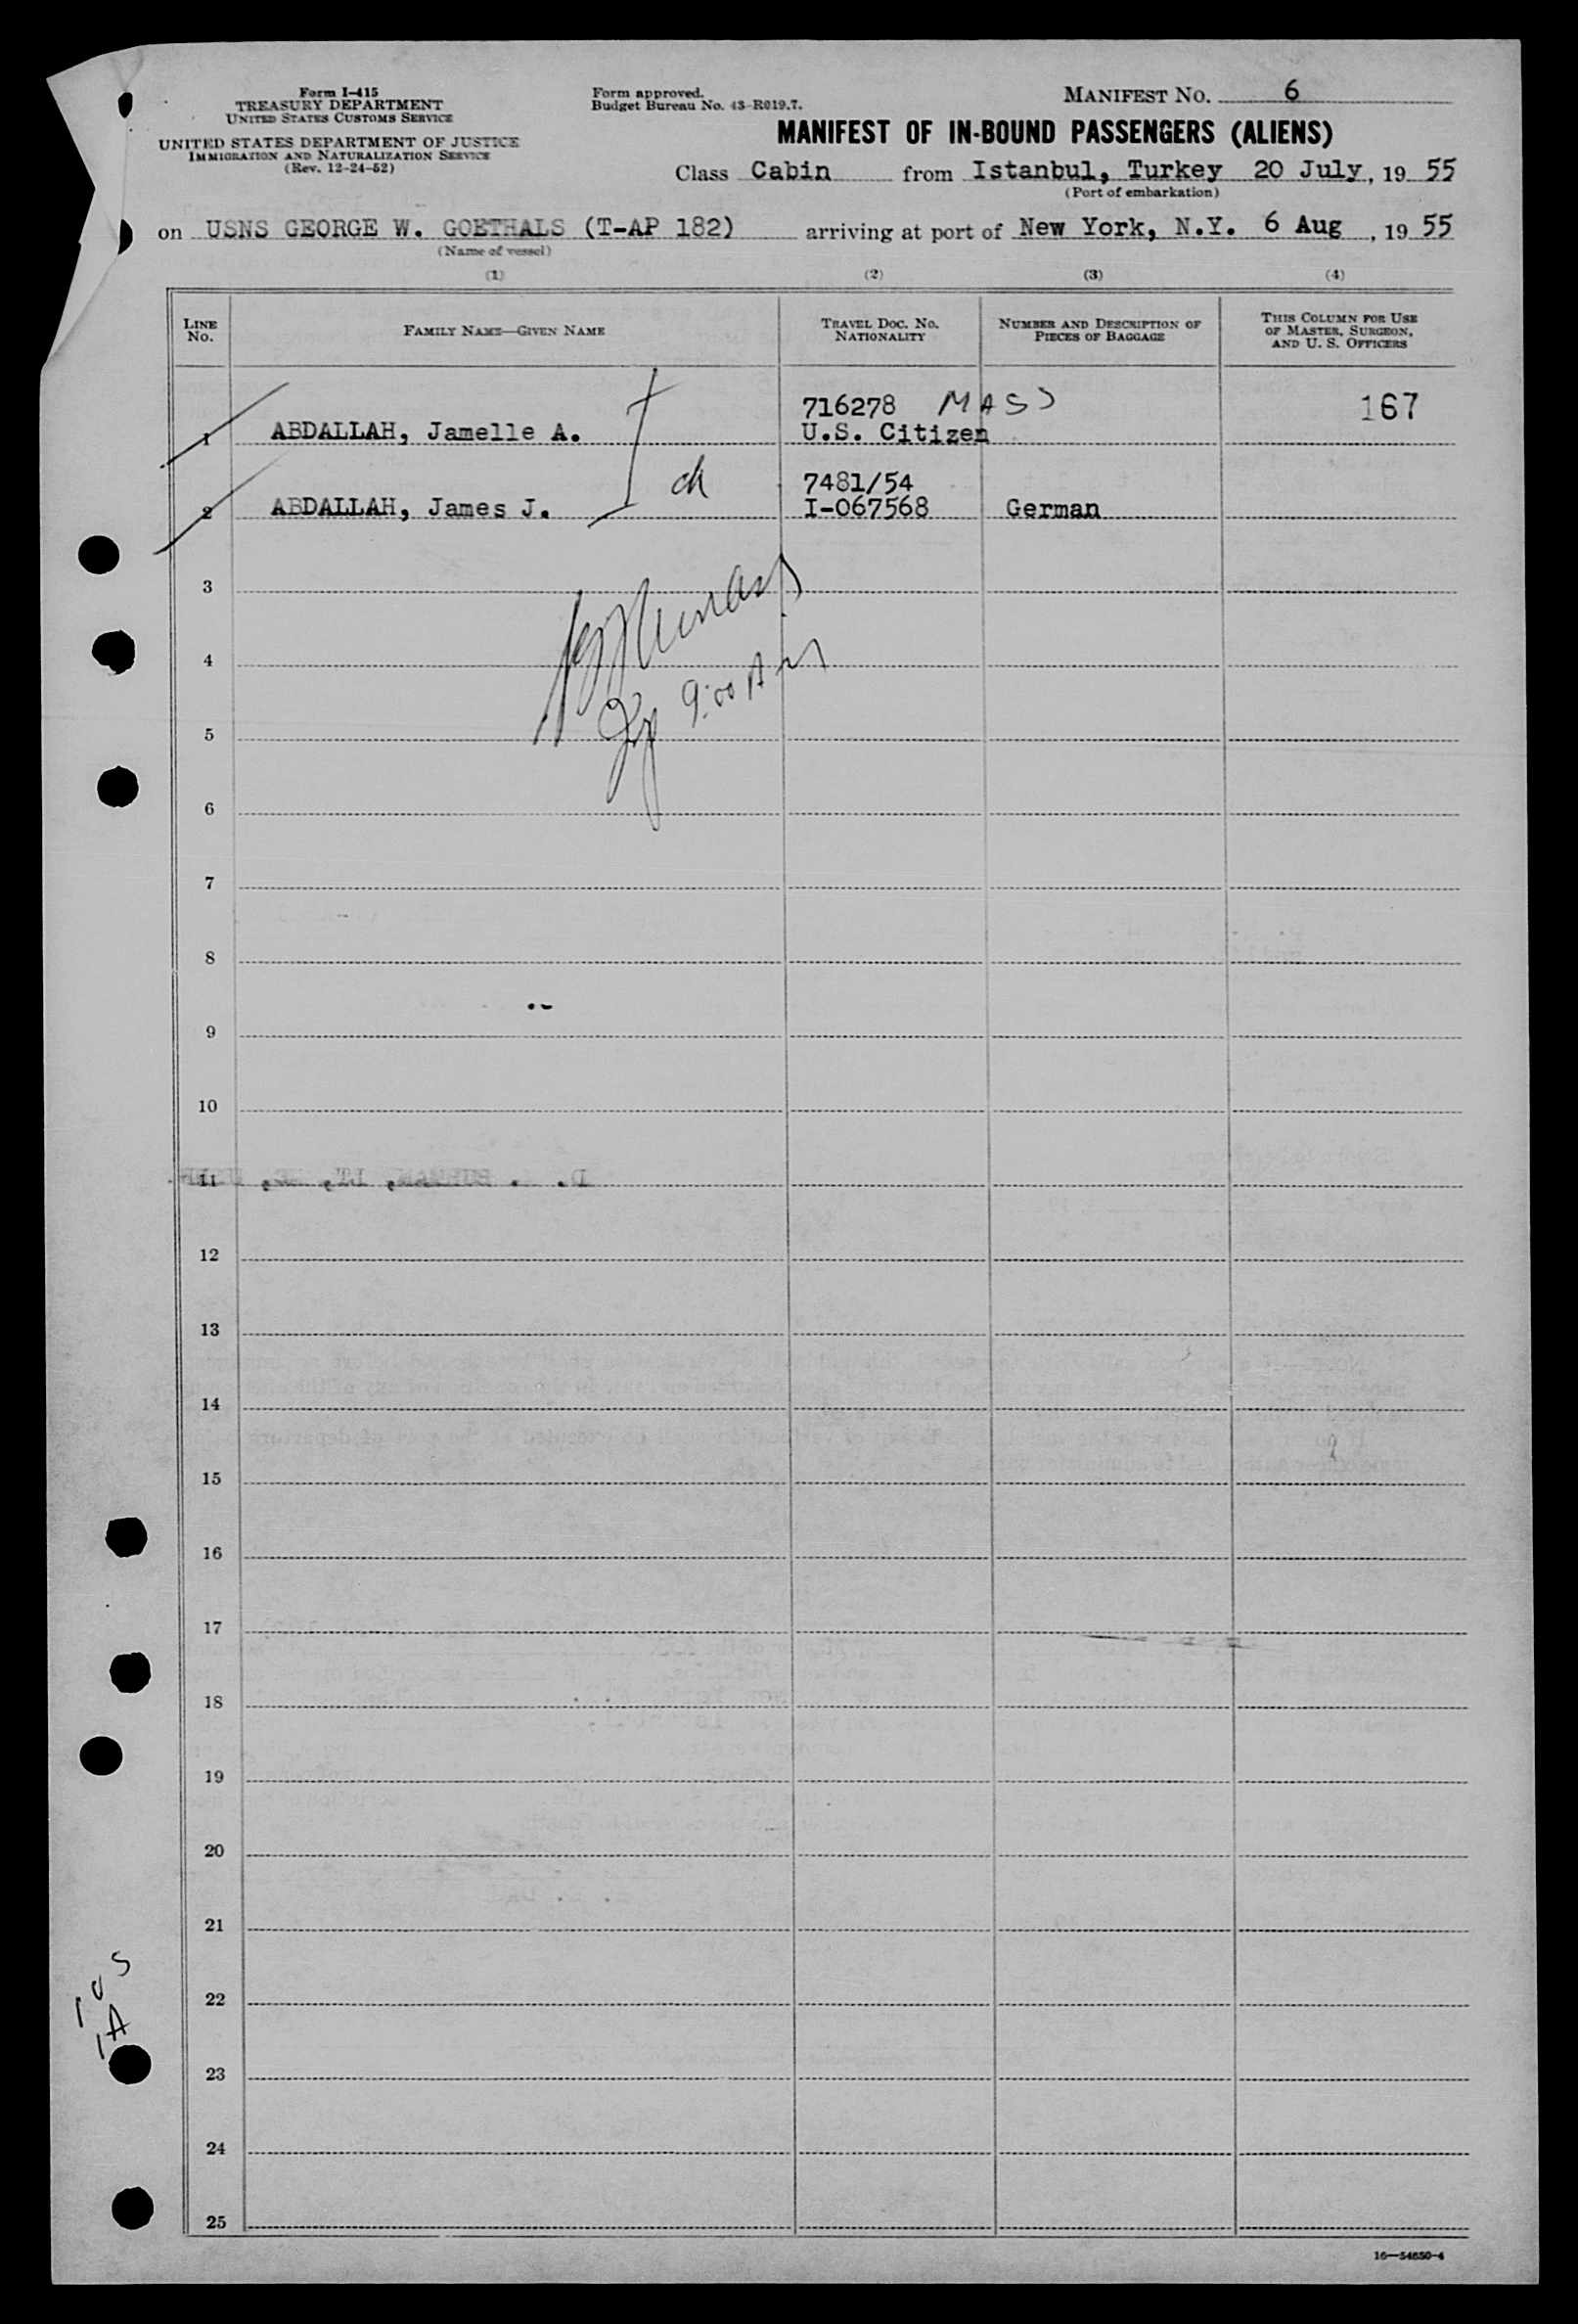 Form I-415
TREASURY DEPARTMENT
UNITED STATES CUSTOMS SERVICE
UNITED STATES DEPARTMENT OF JUSTICE
IMMIGRATION AND NATURALIZATION SERVICE
(Rev. 12-24-52)
Form approved.
Budget Bureau No. 43-R019.7.
MANIFEST NO. 6
MANIFEST OF IN-BOUND PASSENGERS (ALIENS)
Class Cabin from Istanbul, Turkey 20 July, 19 55
(Port of embarkation)
on USNS GEORGE W. GOETHALS (T-AP 182) arriving at port of New York, N.Y. 6 Aug, 19 55
(Name of vessel)
(1) (2) (3) (4)
LINE NO.
FAMILY NAME—GIVEN NAME
TRAVEL DOC. NO.
NATIONALITY
NUMBER AND DESCRIPTION OF
PIECES OF BAGGAGE
THIS COLUMN FOR USE
OF MASTER, SURGEON,
AND U. S. OFFICERS
716278 MASS 167
1 ABDALLAH, Jamelle A. U.S. Citizen
7481/54
2 ABDALLAH, James J. I-067568 German
3
4
9:00 AM
5
6
7
8
9
10
11
12
13
14
15
16
17
18
19
20
21
22
23
24
25
1 US
1A
16—54650-4